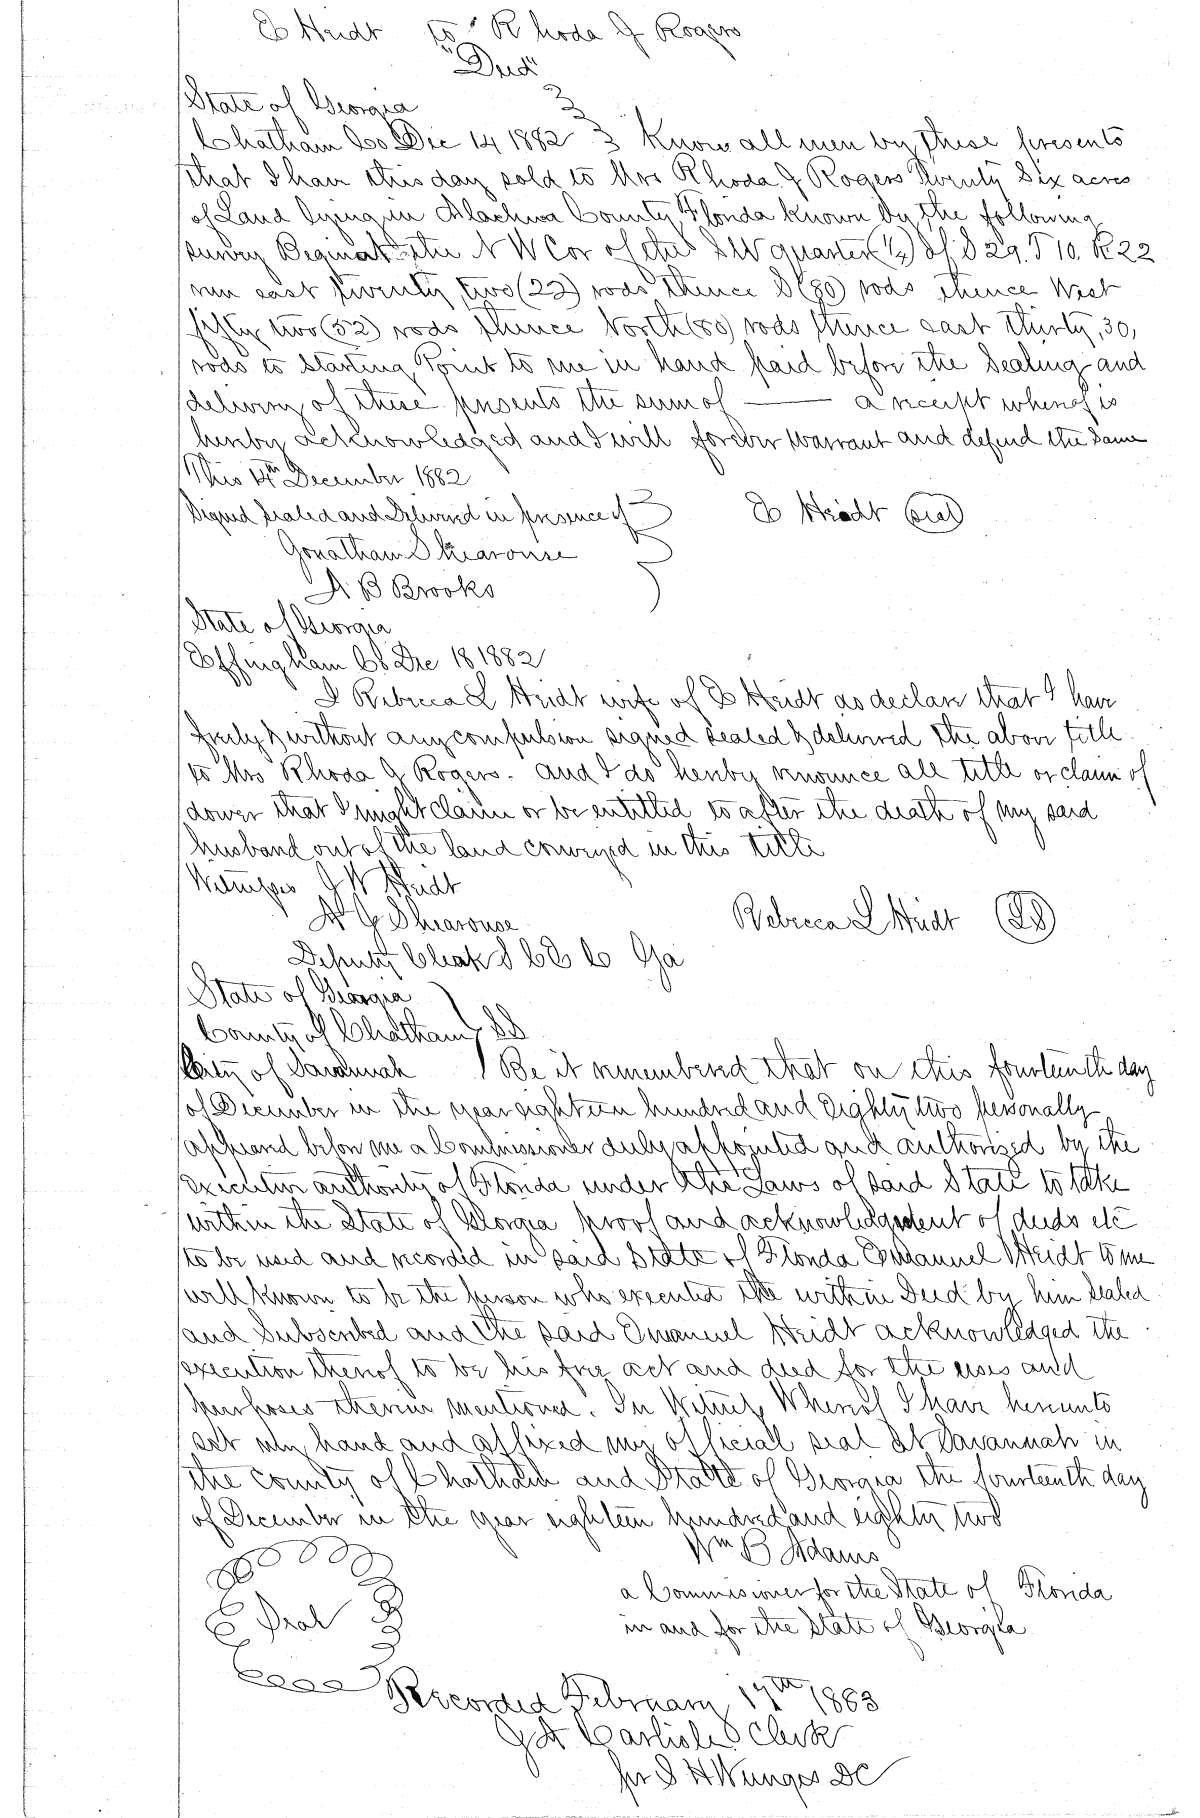 E Heidt to Rhoda J Rogers
"Deed"
State of Georgia
Chatham Co Dec 14 1882 Know all men by these presents
that I have this day sold to Mrs Rhoda J Rogers Twenty Six acres
of Land lying in Alachua County Florida known by the following
survey Begin at the N W Cor of the S W quarter (1/4) of S 29. T 10. R 22
run east twenty two (22) rods thence S (80) rods thence West
fifty two (52) rods thence North (80) rods thence east thirty, 30,
rods to starting Point to me in hand paid before the Sealing and
delivery of these presents the sum of —— a receipt whereof is
hereby acknowledged and I will forever warrant and defend the same
This 14th December 1882
Signed Sealed and Delivered in presence of E Heidt (seal)
Jonathan Shearouse
A B Brooks
State of Georgia
Effingham Co Dec 18 1882
I Rebecca L Heidt wife of E Heidt do declare that I have
freely & without any compulsion signed sealed & delivered the above title
to Mrs Rhoda J Rogers. and I do hereby renounce all title or claim of
dower that I might claim or be entitled to after the death of my said
husband out of the land conveyed in this title
Witnesses J W Heidt
A G Shearouse Rebecca L Heidt (LS)
Deputy Cleak S C E C Ga
State of Georgia
County of Chatham SS
City of Savannah Be it remembered that on this fourteenth day
of December in the year eighteen hundred and Eighty two personally
appeared before me a Commissioner duly appointed and authorized by the
Executive authority of Florida under the Laws of said State to take
within the State of Georgia proof and acknowledgment of deeds etc
to be used and recorded in said State of Florida Emanuel Heidt to me
well known to be the person who executed the within Deed by him Sealed
and Subscribed and the said Emanuel Heidt acknowledged the
execution thereof to be his free act and deed for the uses and
purposes therein mentioned. In Witness Whereof I have hereunto
set my hand and affixed my official seal at Savannah in
the County of Chatham and State of Georgia the fourteenth day
of December in the year eighteen hundred and eighty two
Wm B Adams
Seal a Commissioner for the State of Florida
in and for the State of Georgia
Recorded February 17th 1883
J A Carlisle Clerk
per S H Wienges DC